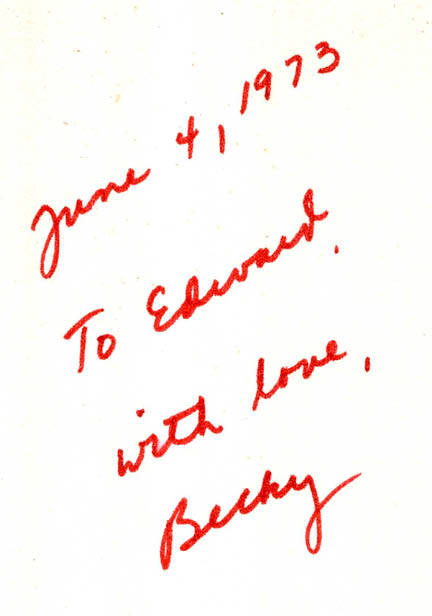 June 4, 1973
To Edward,
with love,
Becky